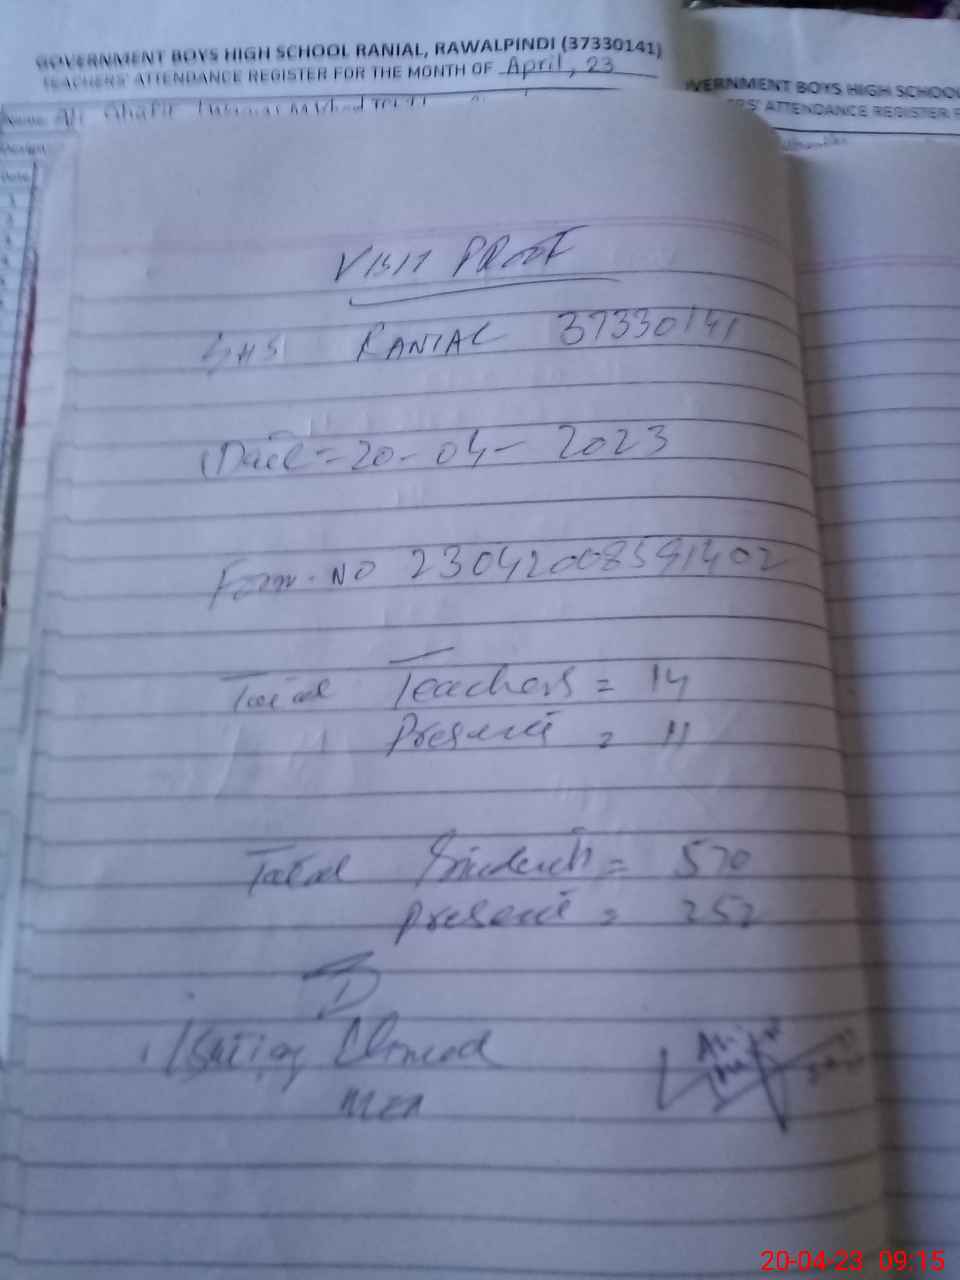 GOVERNMENT BOYS HIGH SCHOOL RANIAL, RAWALPINDI (37330141)
TEACHERS' ATTENDANCE REGISTER FOR THE MONTH OF April, 23
VERNMENT BOYS HIGH SCHOOL
RS' ATTENDANCE REGISTER F
Name
Date
VISIT PROOF
GHS RANIAL 37330141
Date = 20-04-2023
Form. NO 23042008591402
Total Teachers = 14
Present = 11
Total Students = 570
Present = 252
Ahmed
MEA
20-04-23 09:15